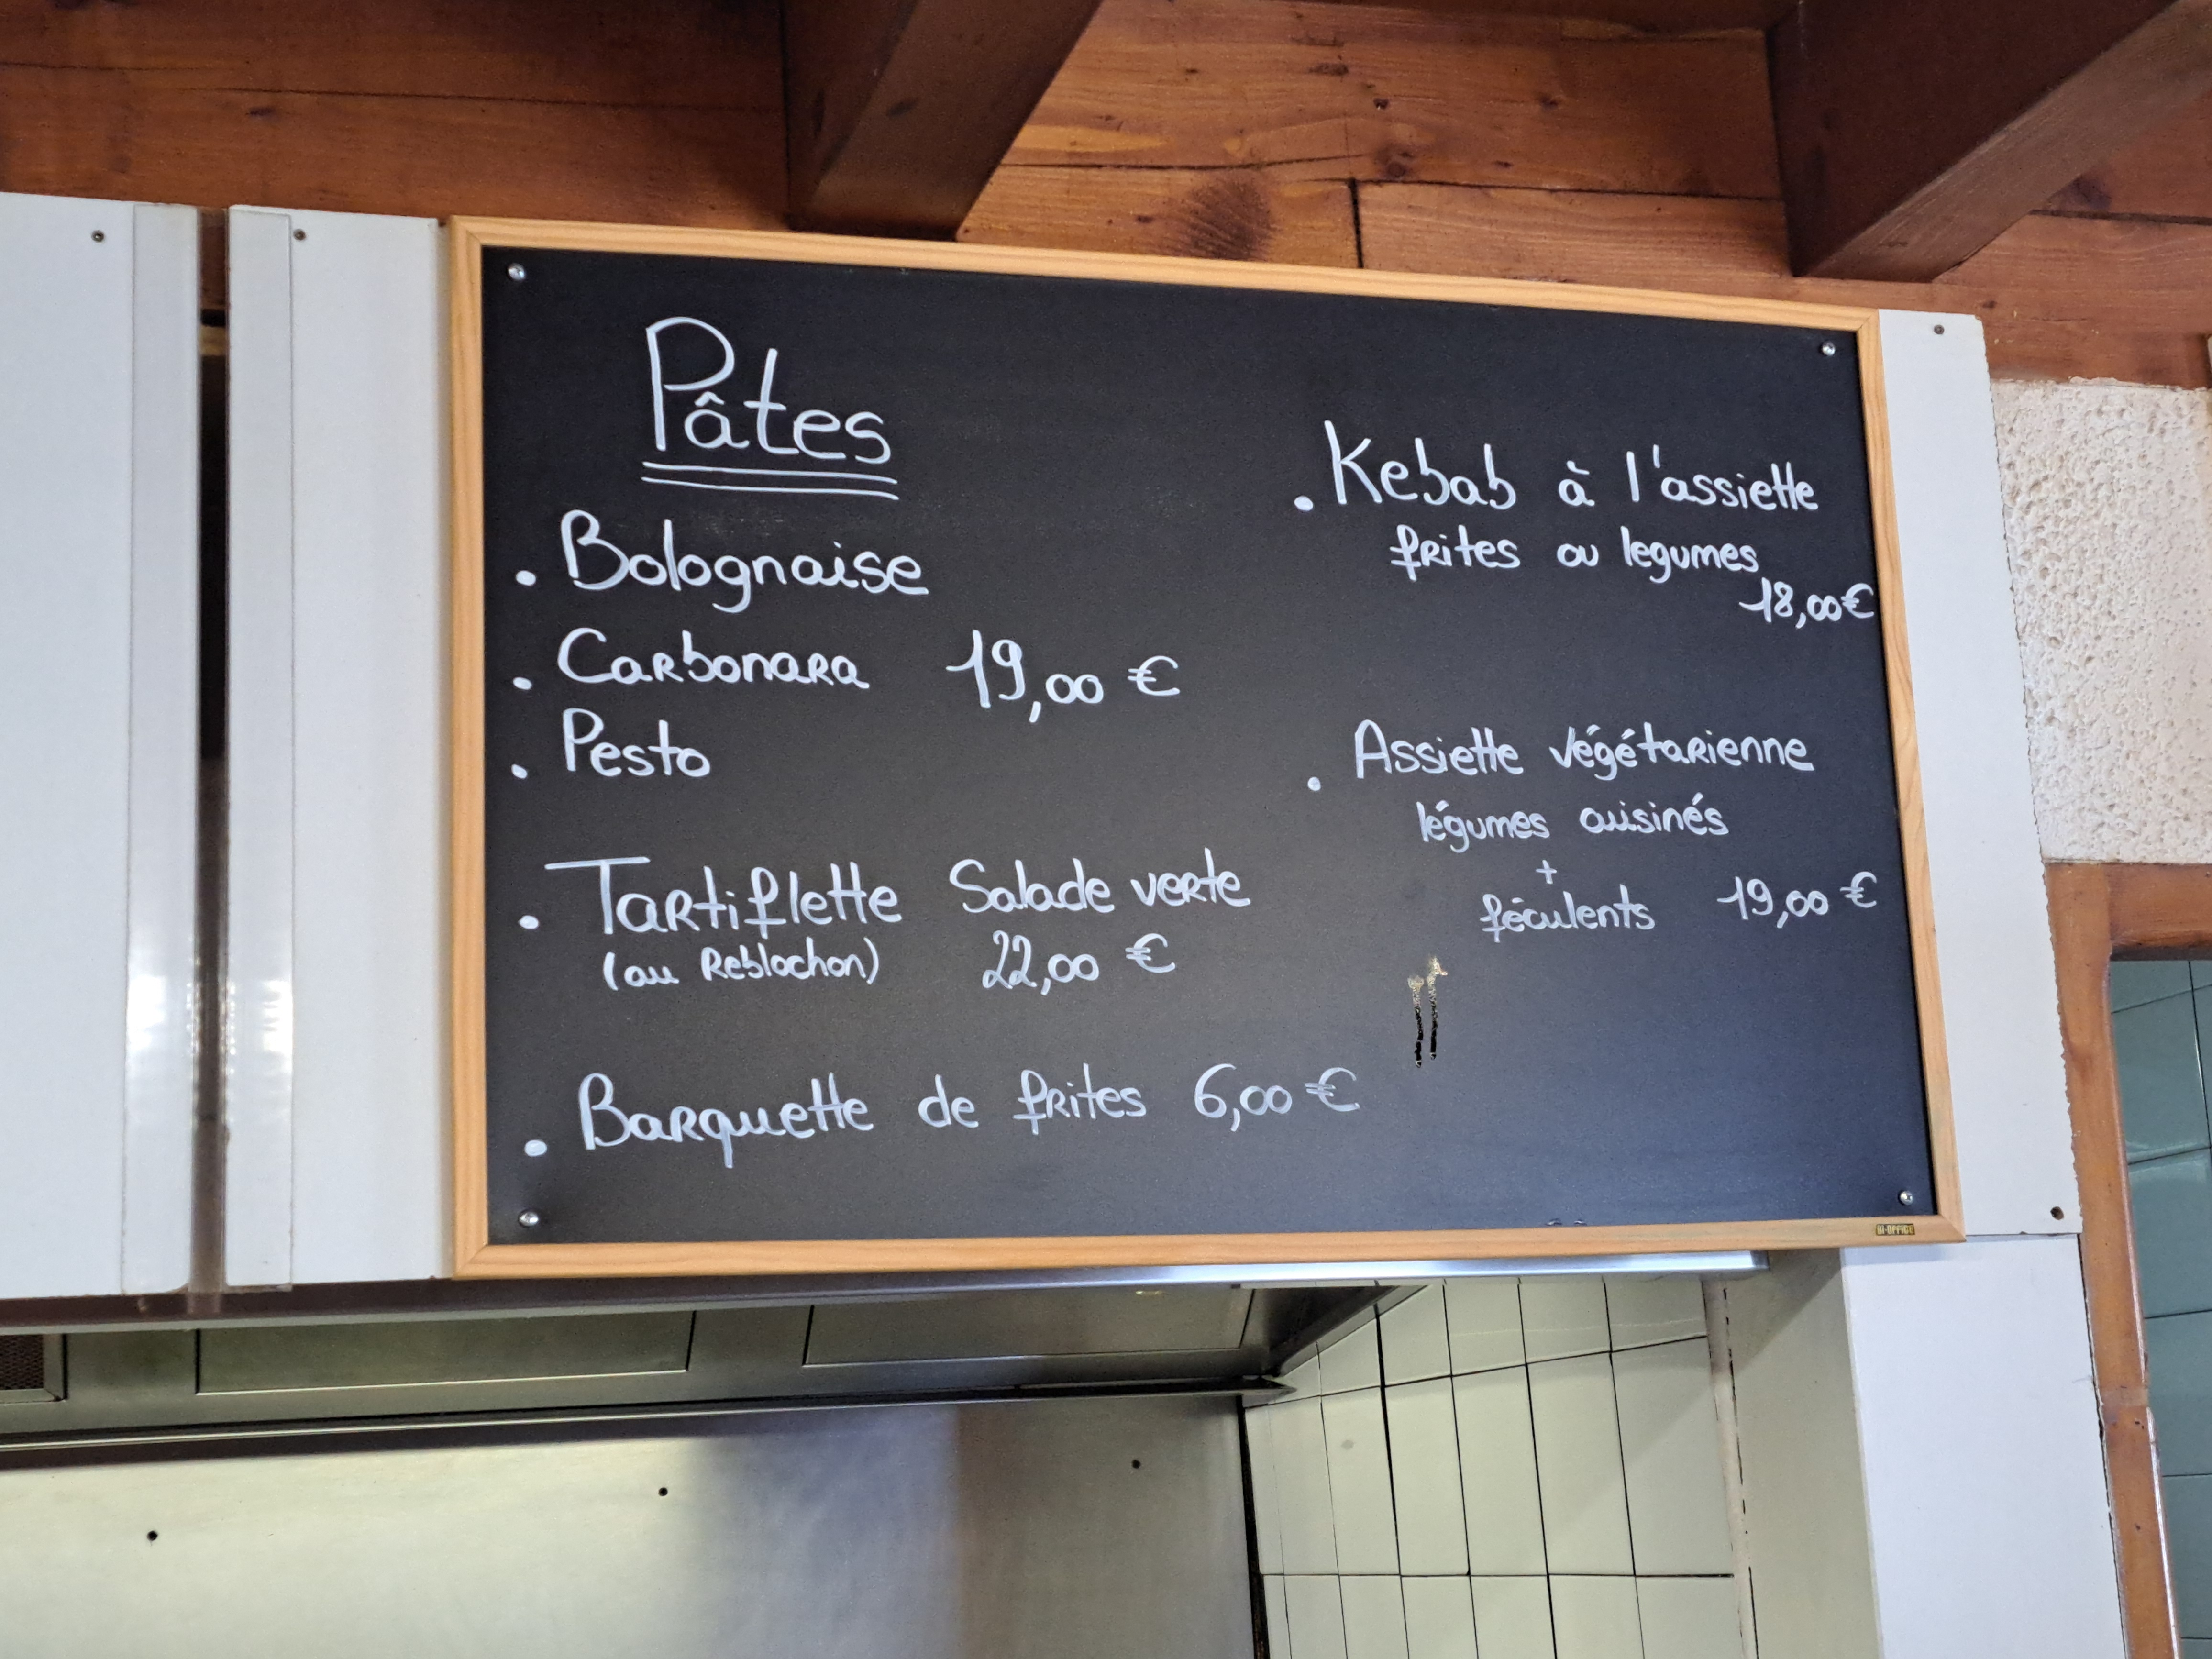 Pâtes
. Bolognaise
. Carbonara 19,00 €
. Pesto
. Tartiflette Salade verte
(au Reblochon) 22,00 €
. Barquette de frites 6,00 €
. Kebab à l'assiette
frites ou legumes
18,00 €
. Assiette végétarienne
légumes cuisinés
+
féculents 19,00 €
BI-OFFICE